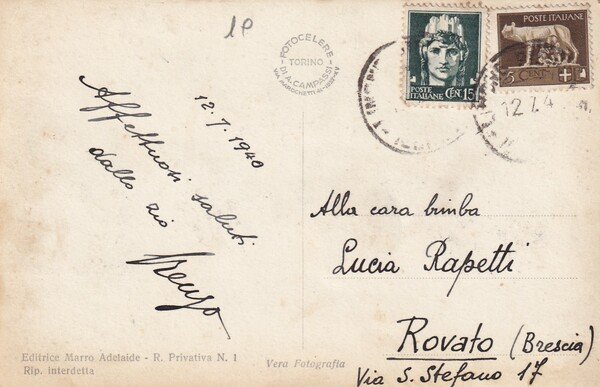 1P
FOTOCELERE
TORINO
DI A. CAMPASSI
12.7.1940
Affettuosi saluti
dallo zio
Renzo
POSTE
ITALIANE
CENT. 15
POSTE ITALIANE
5 CENT.
12.7.4
Alla cara bimba
Lucia Rapetti
Rovato (Brescia)
Via S. Stefano 17
Editrice Marro Adelaide - R. Privativa N. 1
Rip. interdetta
Vera Fotografia